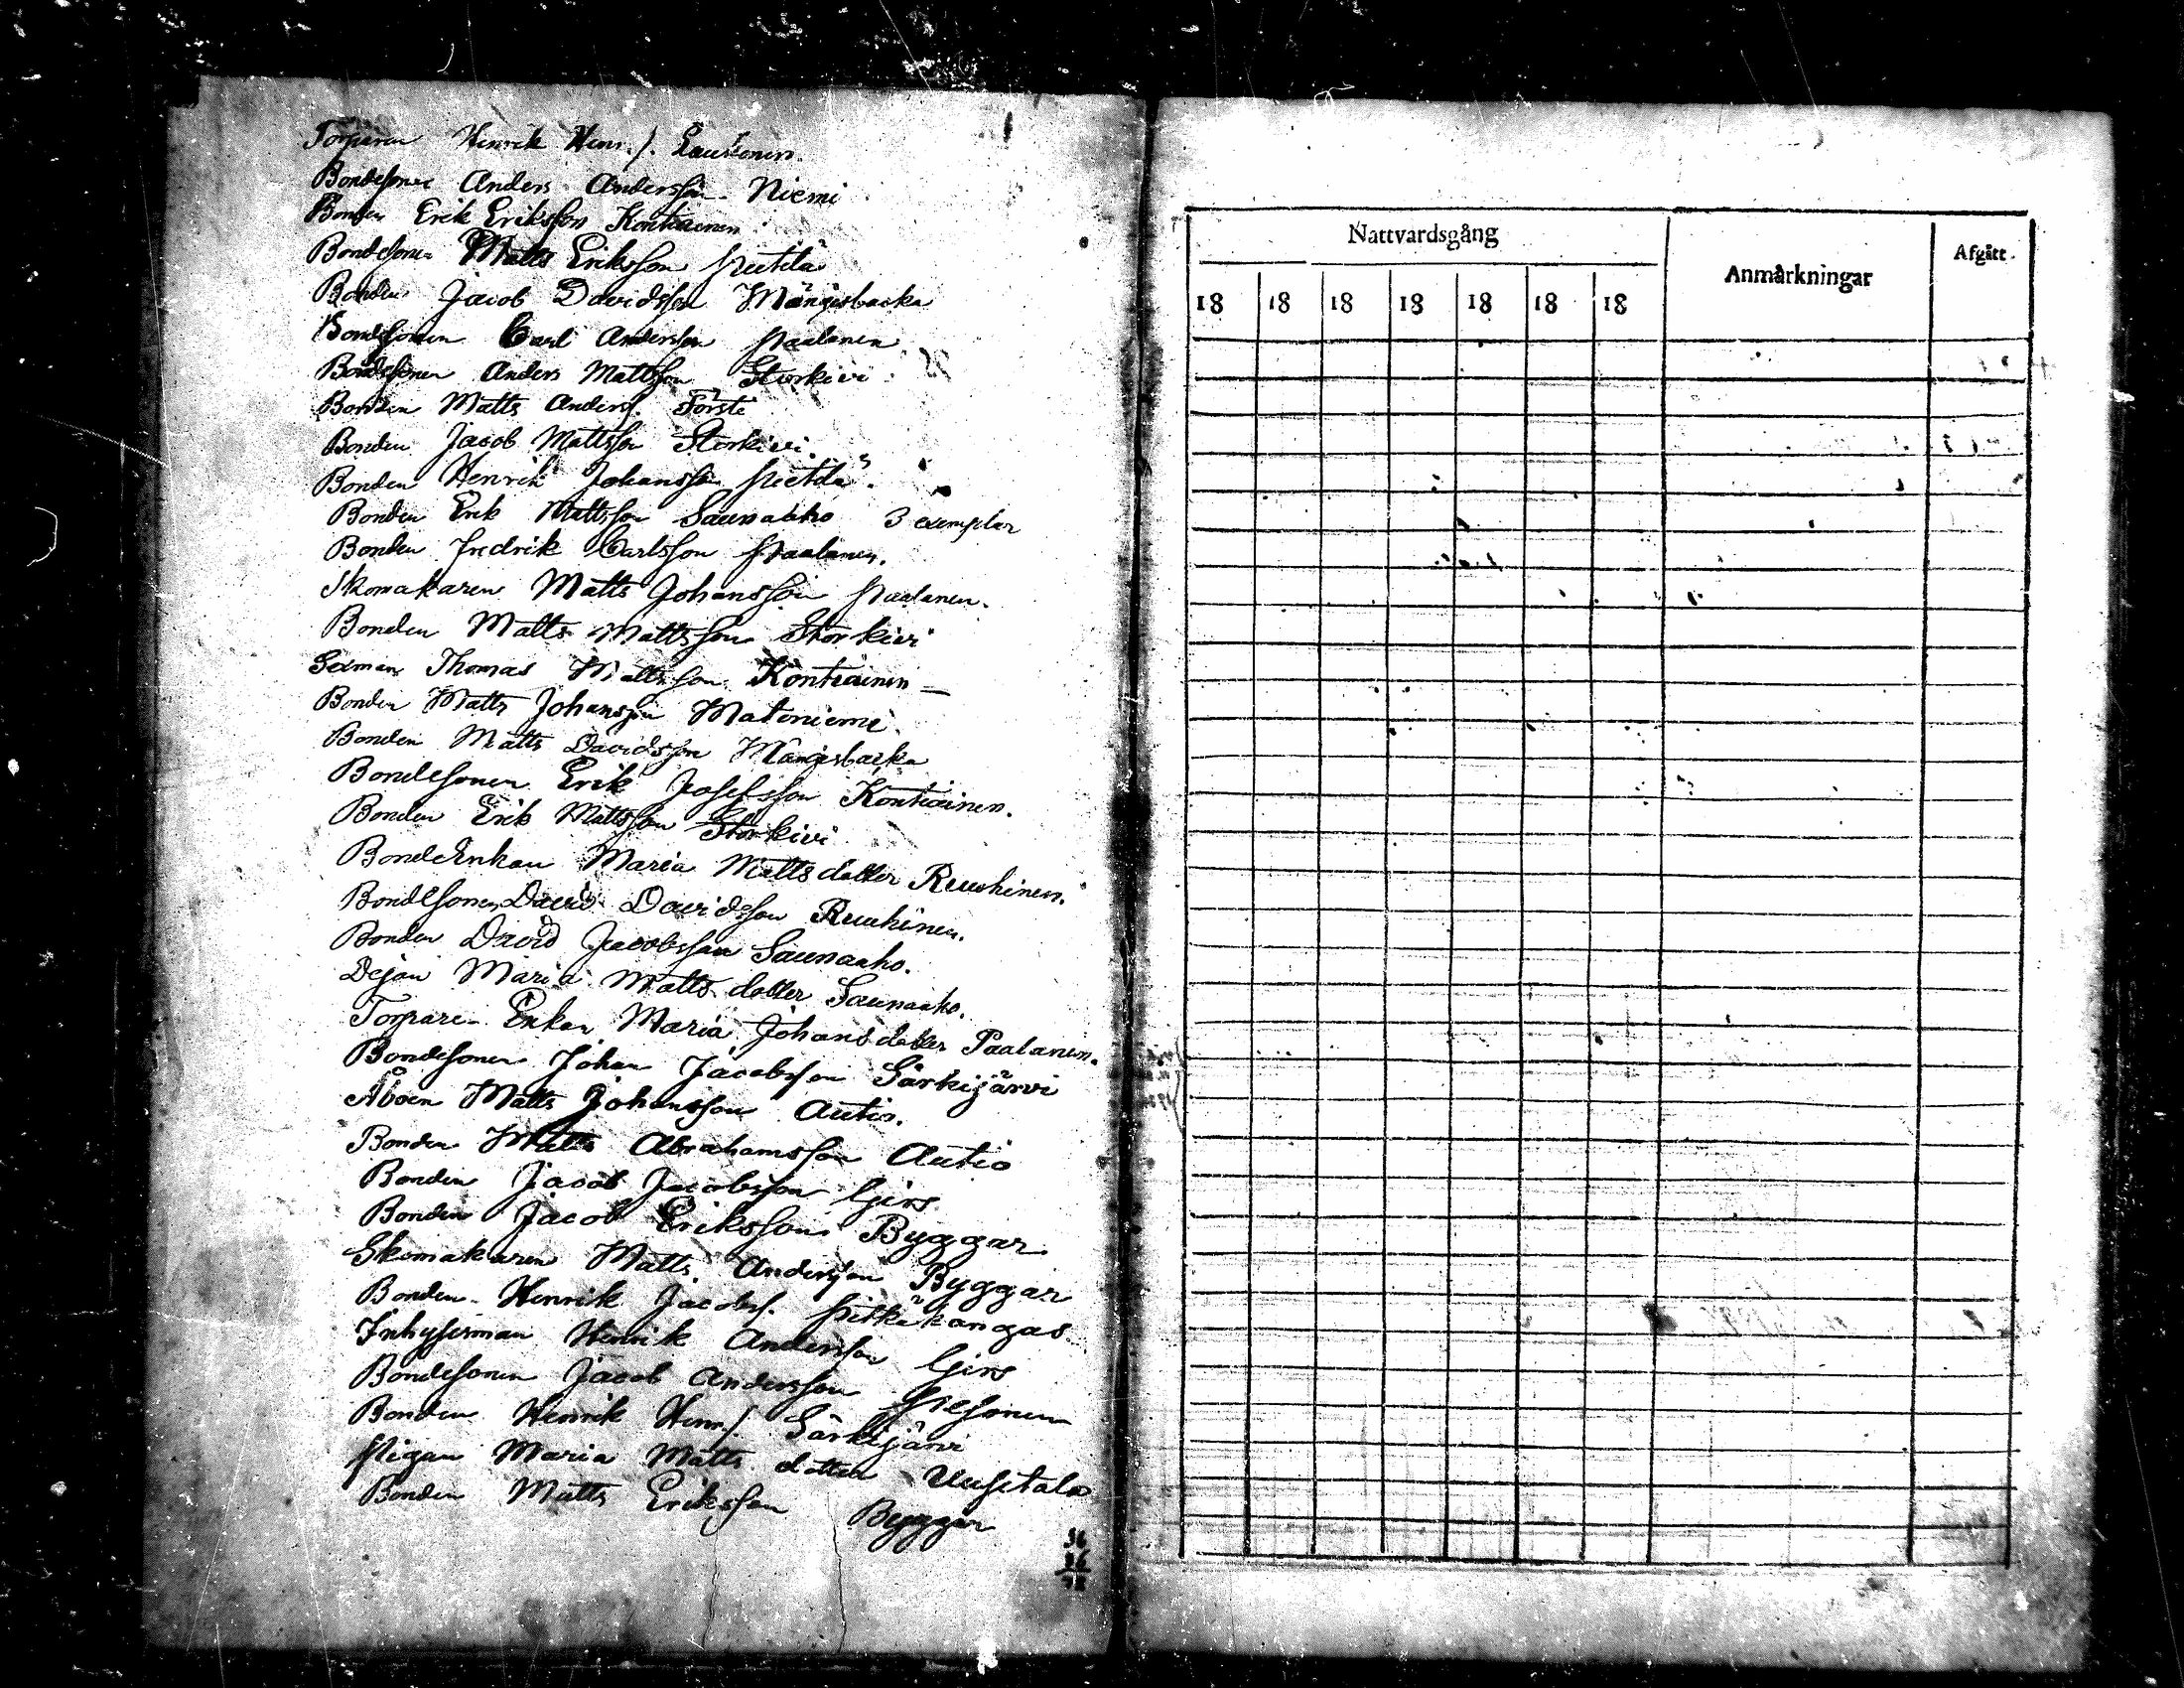 Torparen Henrik Henr.s. Lauronen.
Bondesonen Anders Andersson Niemi
Bonden Erik Eriksson Kontiainen
Bondesonen Matts Eriksson Pietilä
Bonden Jacob Davidsson Mångsbacka
Bondesonen Carl Andersson Paalanen
Bondesonen Anders Mattsson Storkivi
Bonden Matts Anders. Törsti
Bonden Jacob Mattsson Storkivi.
Bonden Henrik Johansson Pietilä.
Bonden Erik Mattsson Saunaaho 3 exemplar
Bonden Fredrik Carlsson Paalanen.
Skomakaren Matts Johansson Paalanen.
Bonden Matts Mattsson Storkivi
Sexman Thomas Mattsson Kontiainen
Bonden Matts Johansson Matoniemi.
Bonden Matts Davidsson Mångsbacka
Bondesonen Erik Josefsson Kontiainen.
Bonden Erik Mattsson Storkivi
BondeEnkan Maria Matts dotter Ruuhinen.
Bondesonen David Davidsson Ruuhinen.
Bonden David Jacobsson Saunaaho.
Dejan Maria Matts dotter Saunaaho.
Torpare-Enkan Maria Johans dotter Paalanen.
Bondesonen Johan Jacobsson Särkijärvi
Åboen Matts Johansson Autio.
Bonden Matts Abrahamsson Autio
Bonden Jacob Jacobsson Girs
Bonden Jacob Eriksson Byggar
Skomakaren Matts Andersson Byggar
Bonden Henrik Jacobs. Pitkäkangas.
Inhysesman Henrik Andersson Girs
Bondesonen Jacob Andersson Pesonen
Bonden Henrik Henr.s. Särkijärvi
Pigan Maria Matts dotter Uusitalo
Bonden Matts Eriksson Byggar
36
Nattvardsgång
Anmärkningar
Afgått.
18 18 18 18 18 18 18